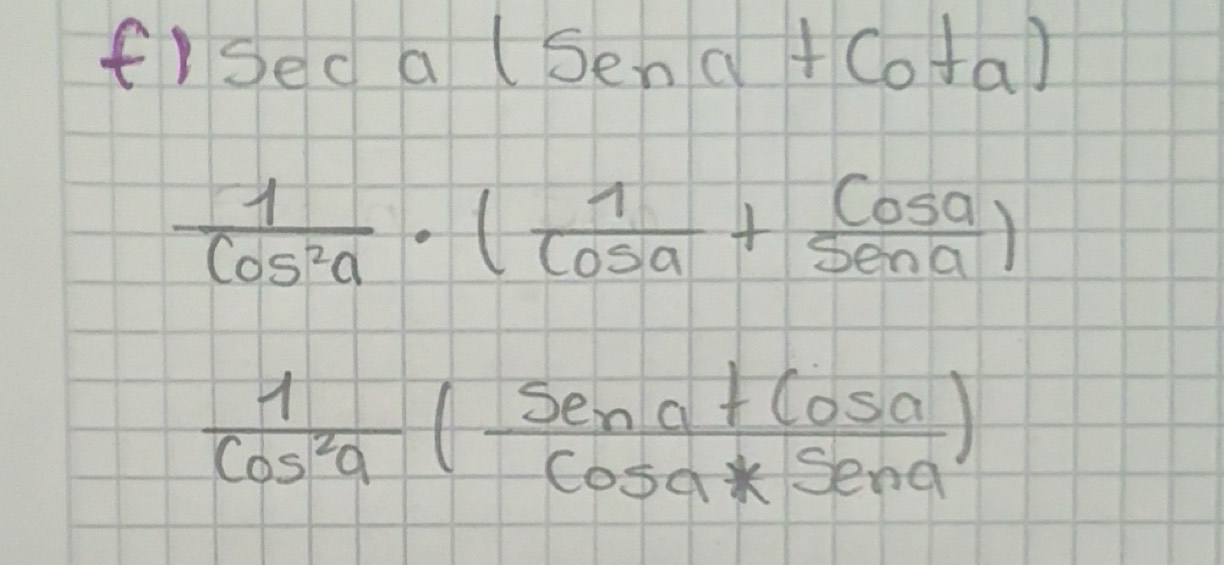 f) Sec a (Sen a + Cot a)
1/Cos²a · (1/Cosa + Cosa/Sena)
1/Cos²a (Sen a + Cosa/Cosa * Sena)